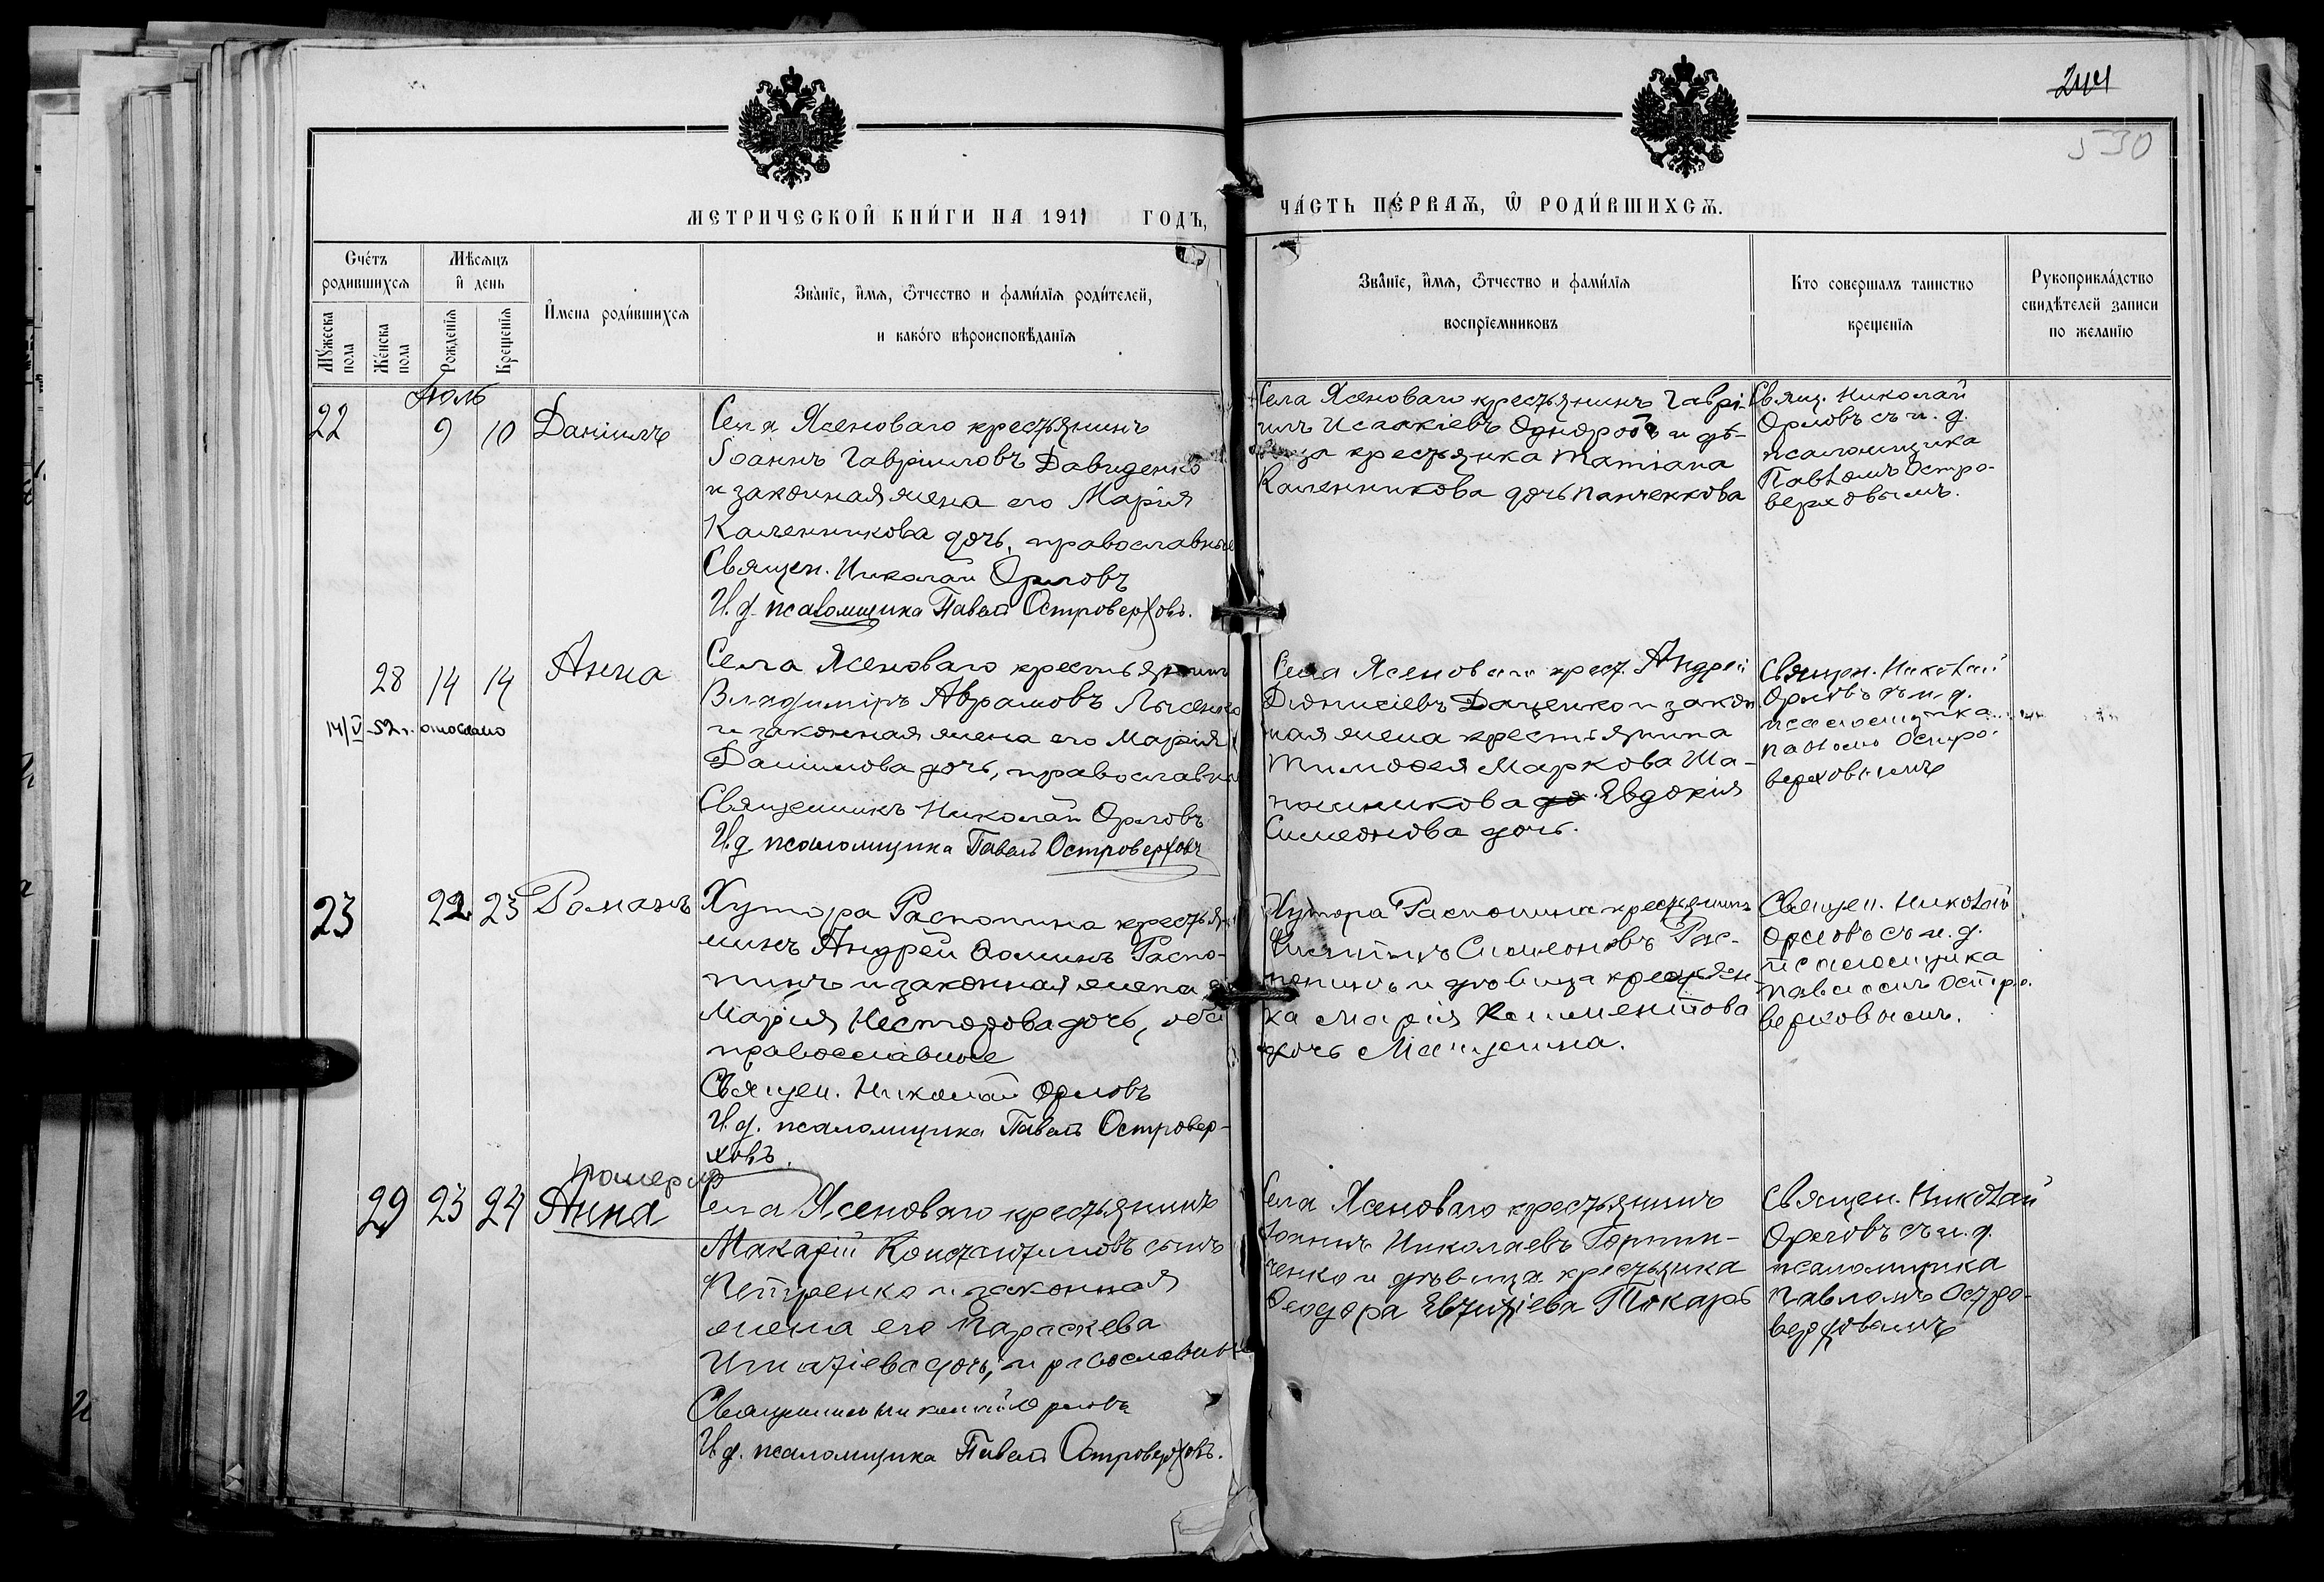 244
530
МЕТРИЧЕСКОЙ КНИ́ГИ НА 1911 ГОДЪ,
ЧА́СТЬ ПЕ́РВАѦ, Ѽ РОДИ́ВШИХСѦ.
Сче́тъ родившихсѧ
Мѣсѧцъ и҆ день
И҆мена роди́вшихсѧ
Зва́нїе, и҆́мѧ, ѻ҆́тчество и фами́лїѧ роди́телей,
и како́го вѣроисповѣ́данїѧ
Зва́нїе, и҆́мѧ, ѻ҆́тчество и фами́лїѧ
воспрїемниковъ
Кто совершалъ таинство
крещенїѧ
Рукоприкла́дство
свидѣтелей записи
по желанїю
Мꙋжеска пола
Же́нска пола
Рожденїѧ
Крещенїѧ
Июль
22
9
10
Данiилъ
Села Ясеноваго крестьянинъ
Іоаннъ Гаврiиловъ Давиденко
и законная жена его Марiя
Каленникова дочь, православные
Священ. Николай Орловъ
И. д. псаломщика Павелъ Островерховъ.
Села Ясеноваго крестьянинъ Гаврi-
илъ Исаакiевъ Однородъ и дѣ-
вица крестьянка Татiана
Каленникова дочь Панченкова
Свящ. Николай
Орловъ съ и. д.
псаломщика
Павломъ Остро-
верховымъ.
28
14
14
Анна
14/V-52 г. отослано
Села Ясеноваго крестьянинъ
Владимiръ Аврамовъ Лысенко
и законная жена его Марiя
Данiилова дочь, православные
Священникъ Николай Орловъ
И. д. псаломщика Павелъ Островерховъ
Села Ясеноваго крест. Андрей
Дiонисiевъ Даценко и закон
ная жена крестьянина
Тимофея Маркова Ша-
почникова до. Евдокiя
Симеонова дочь.
Священ. Николай
Орловъ съ и. д.
псаломщика
Павломъ Остро-
верховымъ
23
22
23
Романъ
Хутора Распопина крестья
нинъ Андрей Фоминъ Распо-
пинъ и законная жена
Марiя Несторова дочь, оба
православные
Священ. Николай Орловъ
И. д. псаломщика Павелъ Островер-
ховъ.
Хутора Распопина крестьянинъ
Симеоновъ Рас-
попинъ и девица крестьян
ка Марiя Климентова
дочь
Священ. Николай
Орловъ съ и. д.
псаломщика
Павломъ Остро-
верховымъ.
29
23
24
Анна
померла
Села Ясеноваго крестьянинъ
Макарiй Константиновъ сынъ
Петренко и законная
жена его Параскева
Игнатiева дочь, православные
Священникъ Николай Орловъ
И. д. псаломщика Павелъ Островерховъ.
Села Ясеноваго крестьянинъ
Іоаннъ Николаевъ
ченко и дѣвица крестьянка
Феодора Евтихiева Токарь
Священ. Николай
Орловъ съ и. д.
псаломщика
Павломъ Остро-
верховымъ